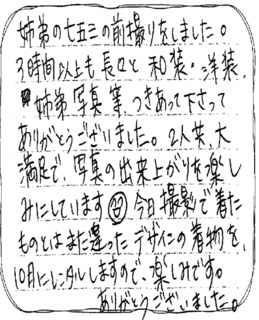 姉弟の七五三の前撮りをしました。
3時間以上も長々と和装・洋装、
姉弟写真等、つきあって下さって
ありがとうございました。2人共、大
満足で、写真の出来上がりを楽し
みにしています 今日撮影で着た
ものとはまた違ったデザインの着物を、
10月にレンタルしますので、楽しみです。
ありがとうございました。